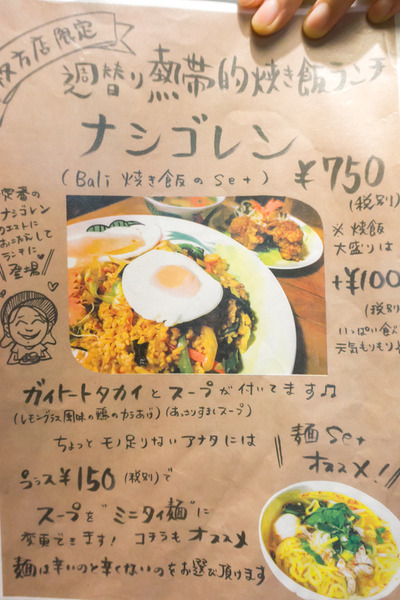 枚方店限定
週替り熱帯的焼き飯ランチ
ナシゴレン
(Bali 焼き飯の Set)
¥750
(税別)
※焼飯
大盛りは
+¥100
(税別)
いっぱい食
元気もりもり
定番の
ナシゴレン
リクエストに
お応えして
ランチに
登場!
ガイトートタカイとスープが付いてます♫
(レモングラス風味の鶏のからあげ)(あっさりすましスープ)
ちょっとモノ足りないアナタには
麺Set
オススメ!
プラス¥150(税別)で
スープを"ミニタイ麺"に
変更できます! コチラもオススメ
麺は辛いのと辛くないのをお選び頂けます